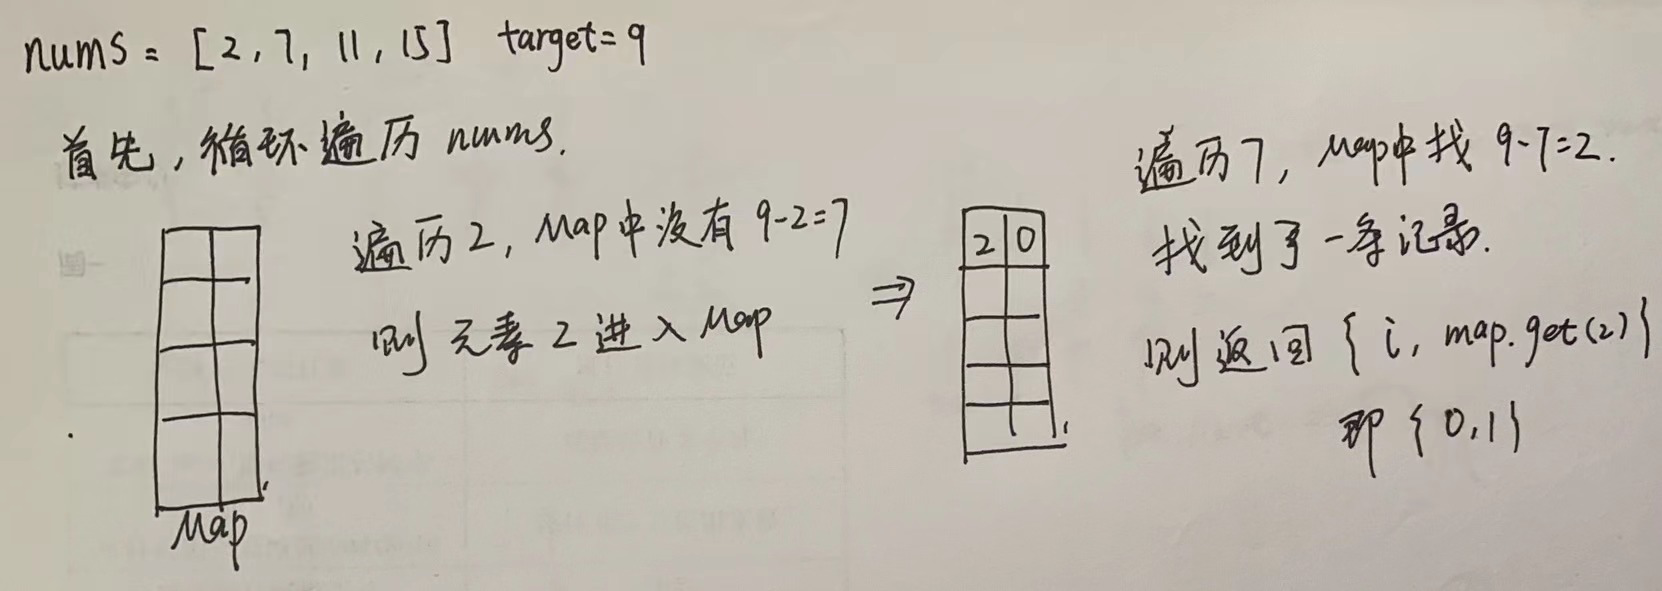 nums = [2, 7, 11, 15] target=9
首先，循环遍历 nums.
遍历2，Map中没有 9-2=7
则元素2进入Map
Map
⇒
2 0
遍历7，Map中找 9-7=2.
找到了一条记录.
则返回 { i, map.get(2)}
即 {0,1}